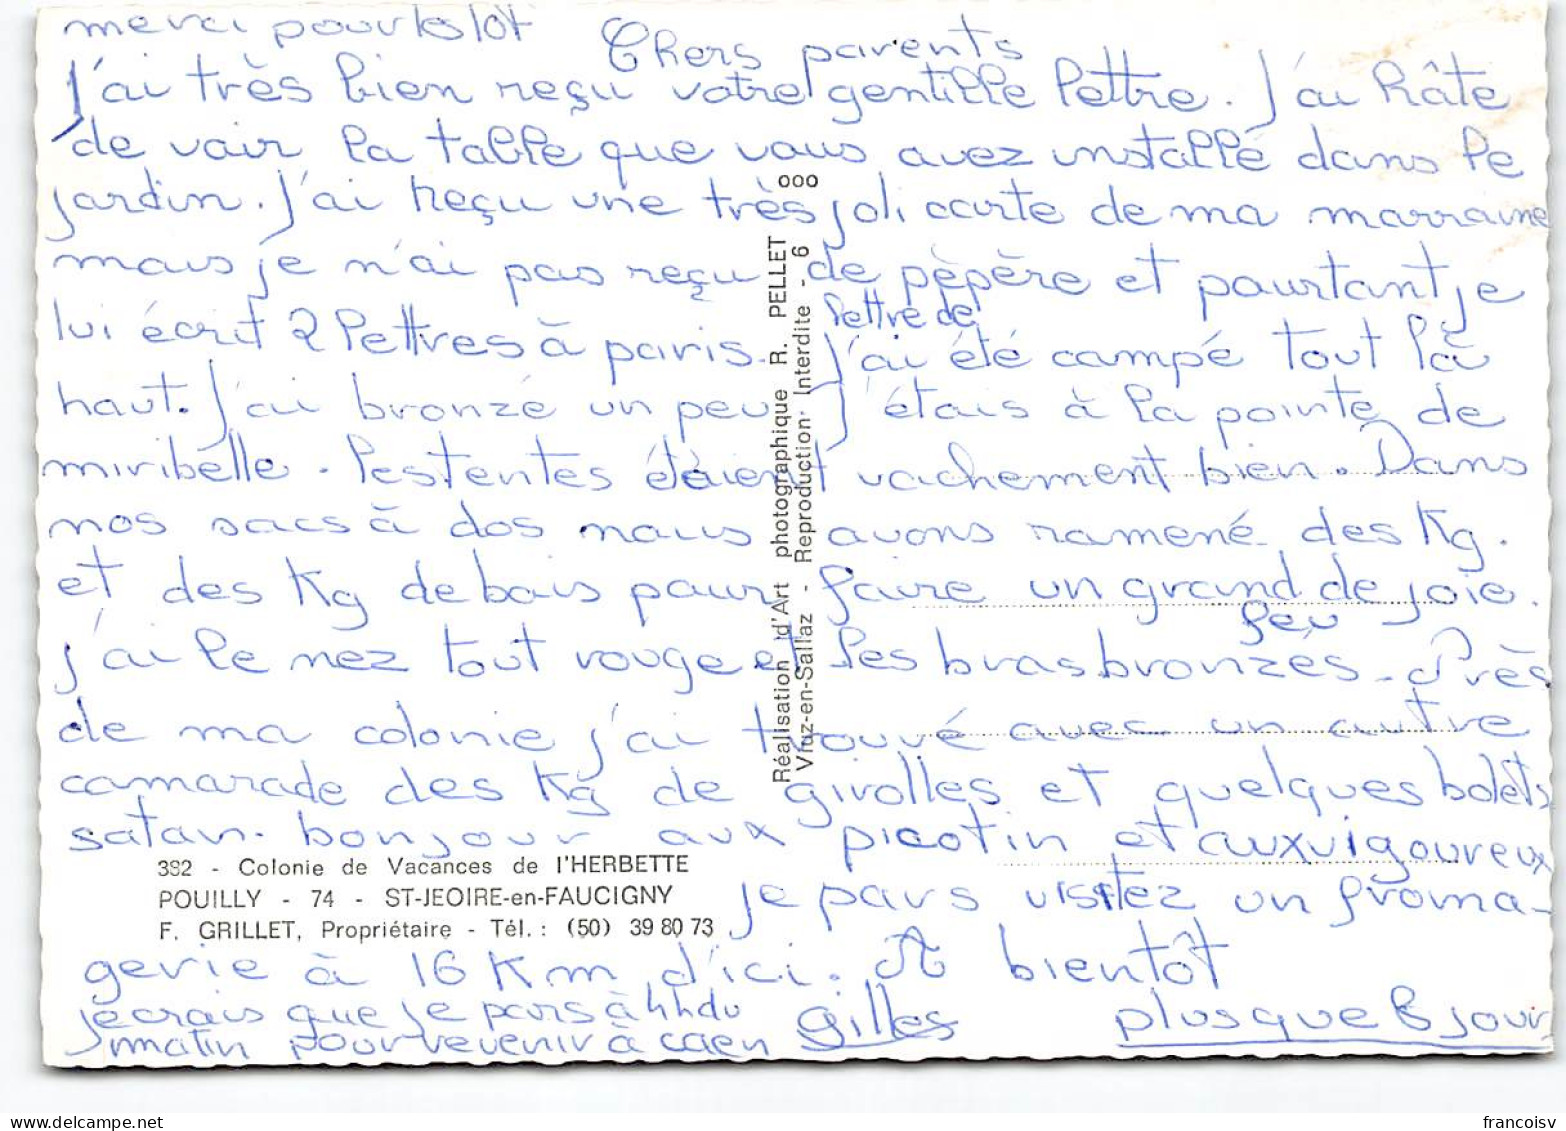 merci pour le lot
Chers parents
J'ai très bien reçu votre gentille lettre. J'ai hâte
de voir la table que vous avez installé dans le
jardin. J'ai reçu une très joli carte de ma marraine
mais je n'ai pas reçu de pèpère et pourtant je
lettre de
lui écrit 2 lettres à paris. J'ai été campé tout là
haut. J'ai bronzé un peu J'étais à la pointe de
miribelle. les tentes étaient vachement bien. Dans
nos sacs à dos nous avons ramené des Kg.
et des Kg de bois pour faire un grand de joie.
feu
j'ai le nez tout rouge et les bras bronzés. Près
de ma colonie j'ai trouvé avec un autre
camarade des Kg de girolles et quelques bolets
satan. bonjour aux picotin et aux vigoureux
je pars visitez un froma-
gerie à 16 Km d'ici. A bientôt
je crois que je pars à 4h du
matin pour revenir à caen
Gilles
plus que 8 jour
382 - Colonie de Vacances de l'HERBETTE
POUILLY - 74 - ST-JEOIRE-en-FAUCIGNY
F. GRILLET, Propriétaire - Tél. : (50) 39 80 73
Réalisation d'Art photographique R. PELLET
Viuz-en-Sallaz - Reproduction Interdite - 6
ooo
francoisv